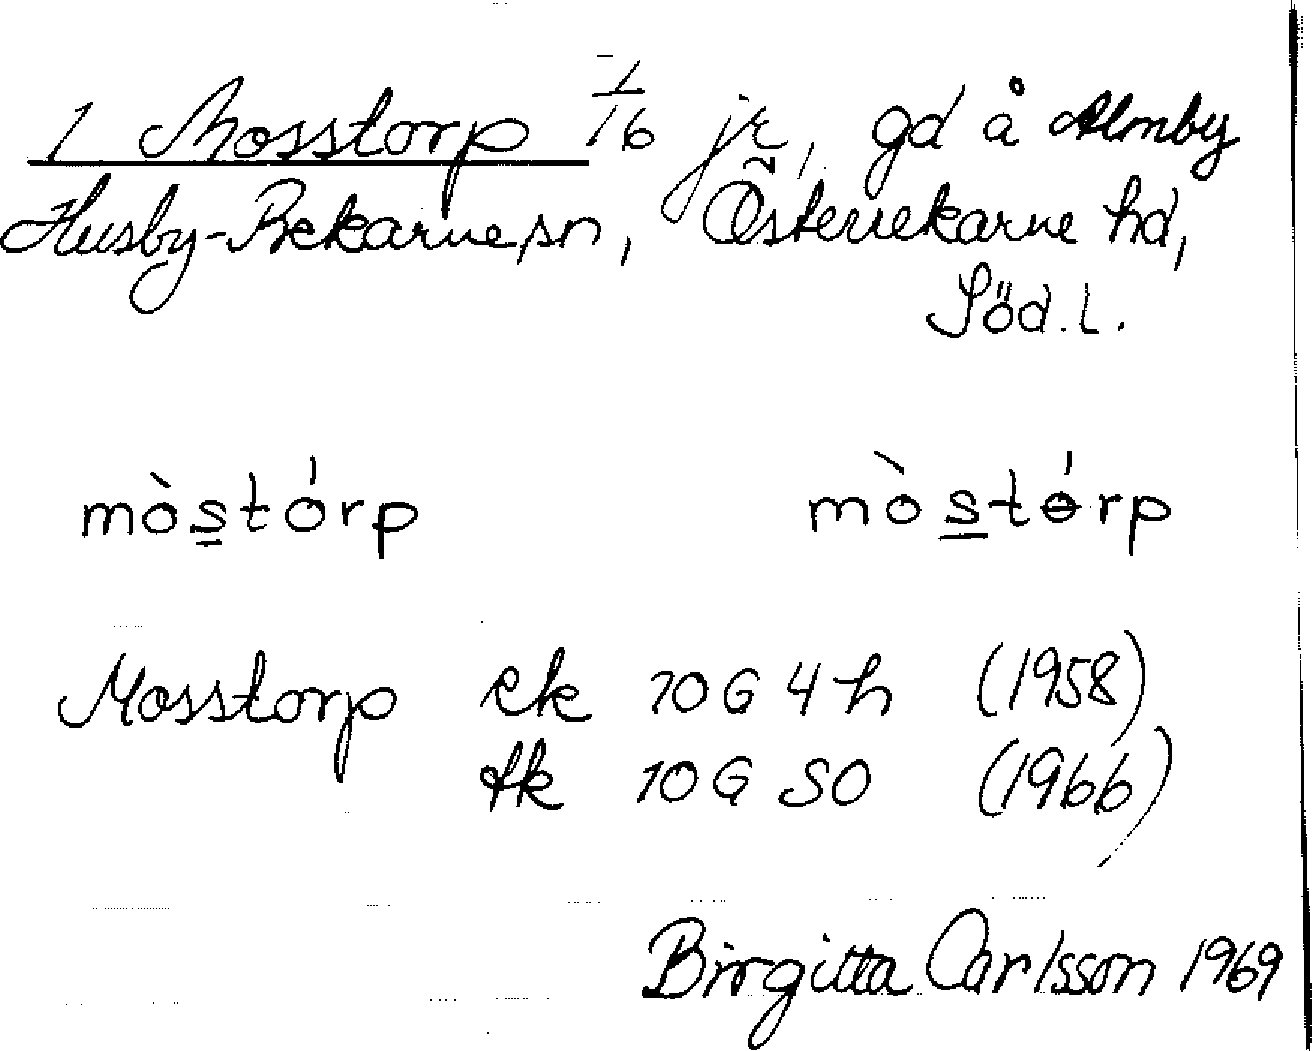 1 Mosstorp 1/16 jr, gd å Almby
Husby-Rekarne sn, Österrekarne hd,
Söd. l.
mòs̲tórp mòs̲tɵ́rp
Mosstorp ek 10G 4h (1958)
tk 10G SO (1966)
Birgitta Carlsson 1969